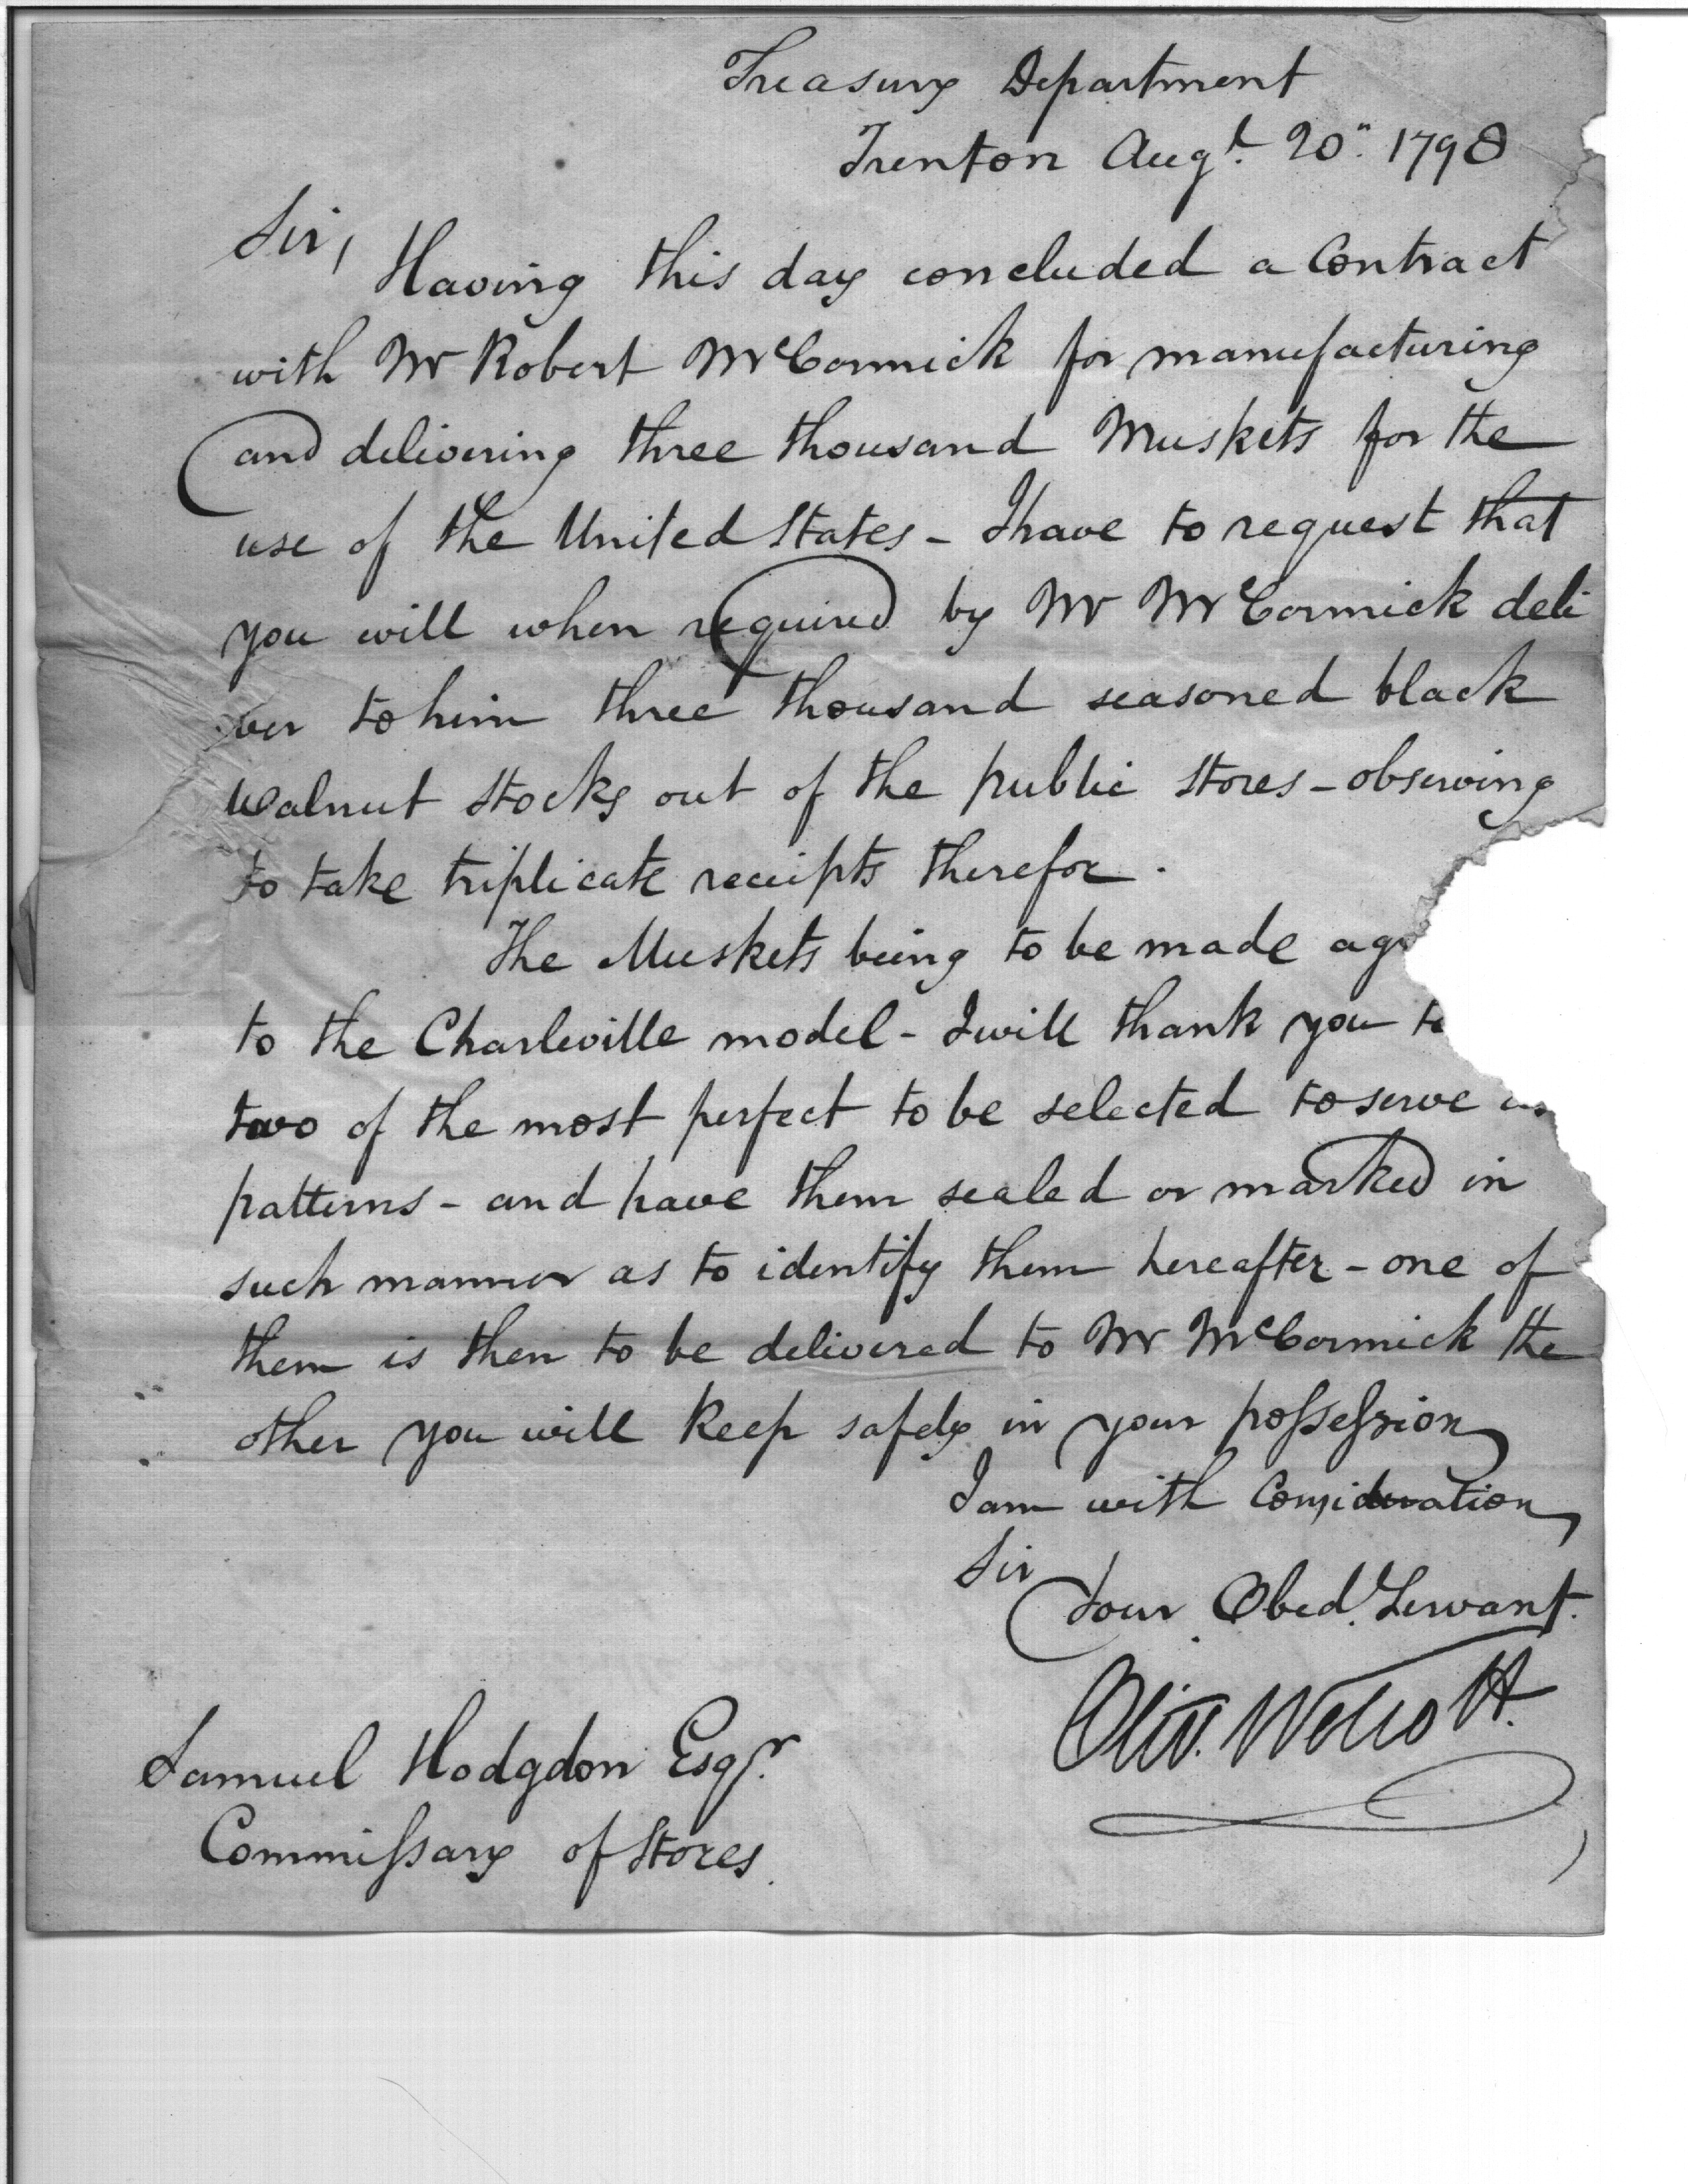 Treasury Department
Trenton Augt. 20" 1798
Sir,
Having this day concluded a Contract
with Mr Robert McCormick for manufacturing
and delivering three thousand Muskets for the
use of the United States - I have to request that
you will when required by Mr McCormick deli
ver to him three thousand seasoned black
Walnut Stocks out of the public Stores - observing
to take triplicate receipts therefor.
The Muskets being to be made ag
to the Charleville model - I will thank you
two of the most perfect to be selected to serve as
patterns - and have them sealed or marked in
such manner as to identify them hereafter - one of
them is then to be delivered to Mr McCormick the
other you will keep safely in your possession
I am with Consideration
Sir
Your Obed. Servant.
Oliv. Wolcott.
Samuel Hodgdon Esqr.
Commissary of Stores.